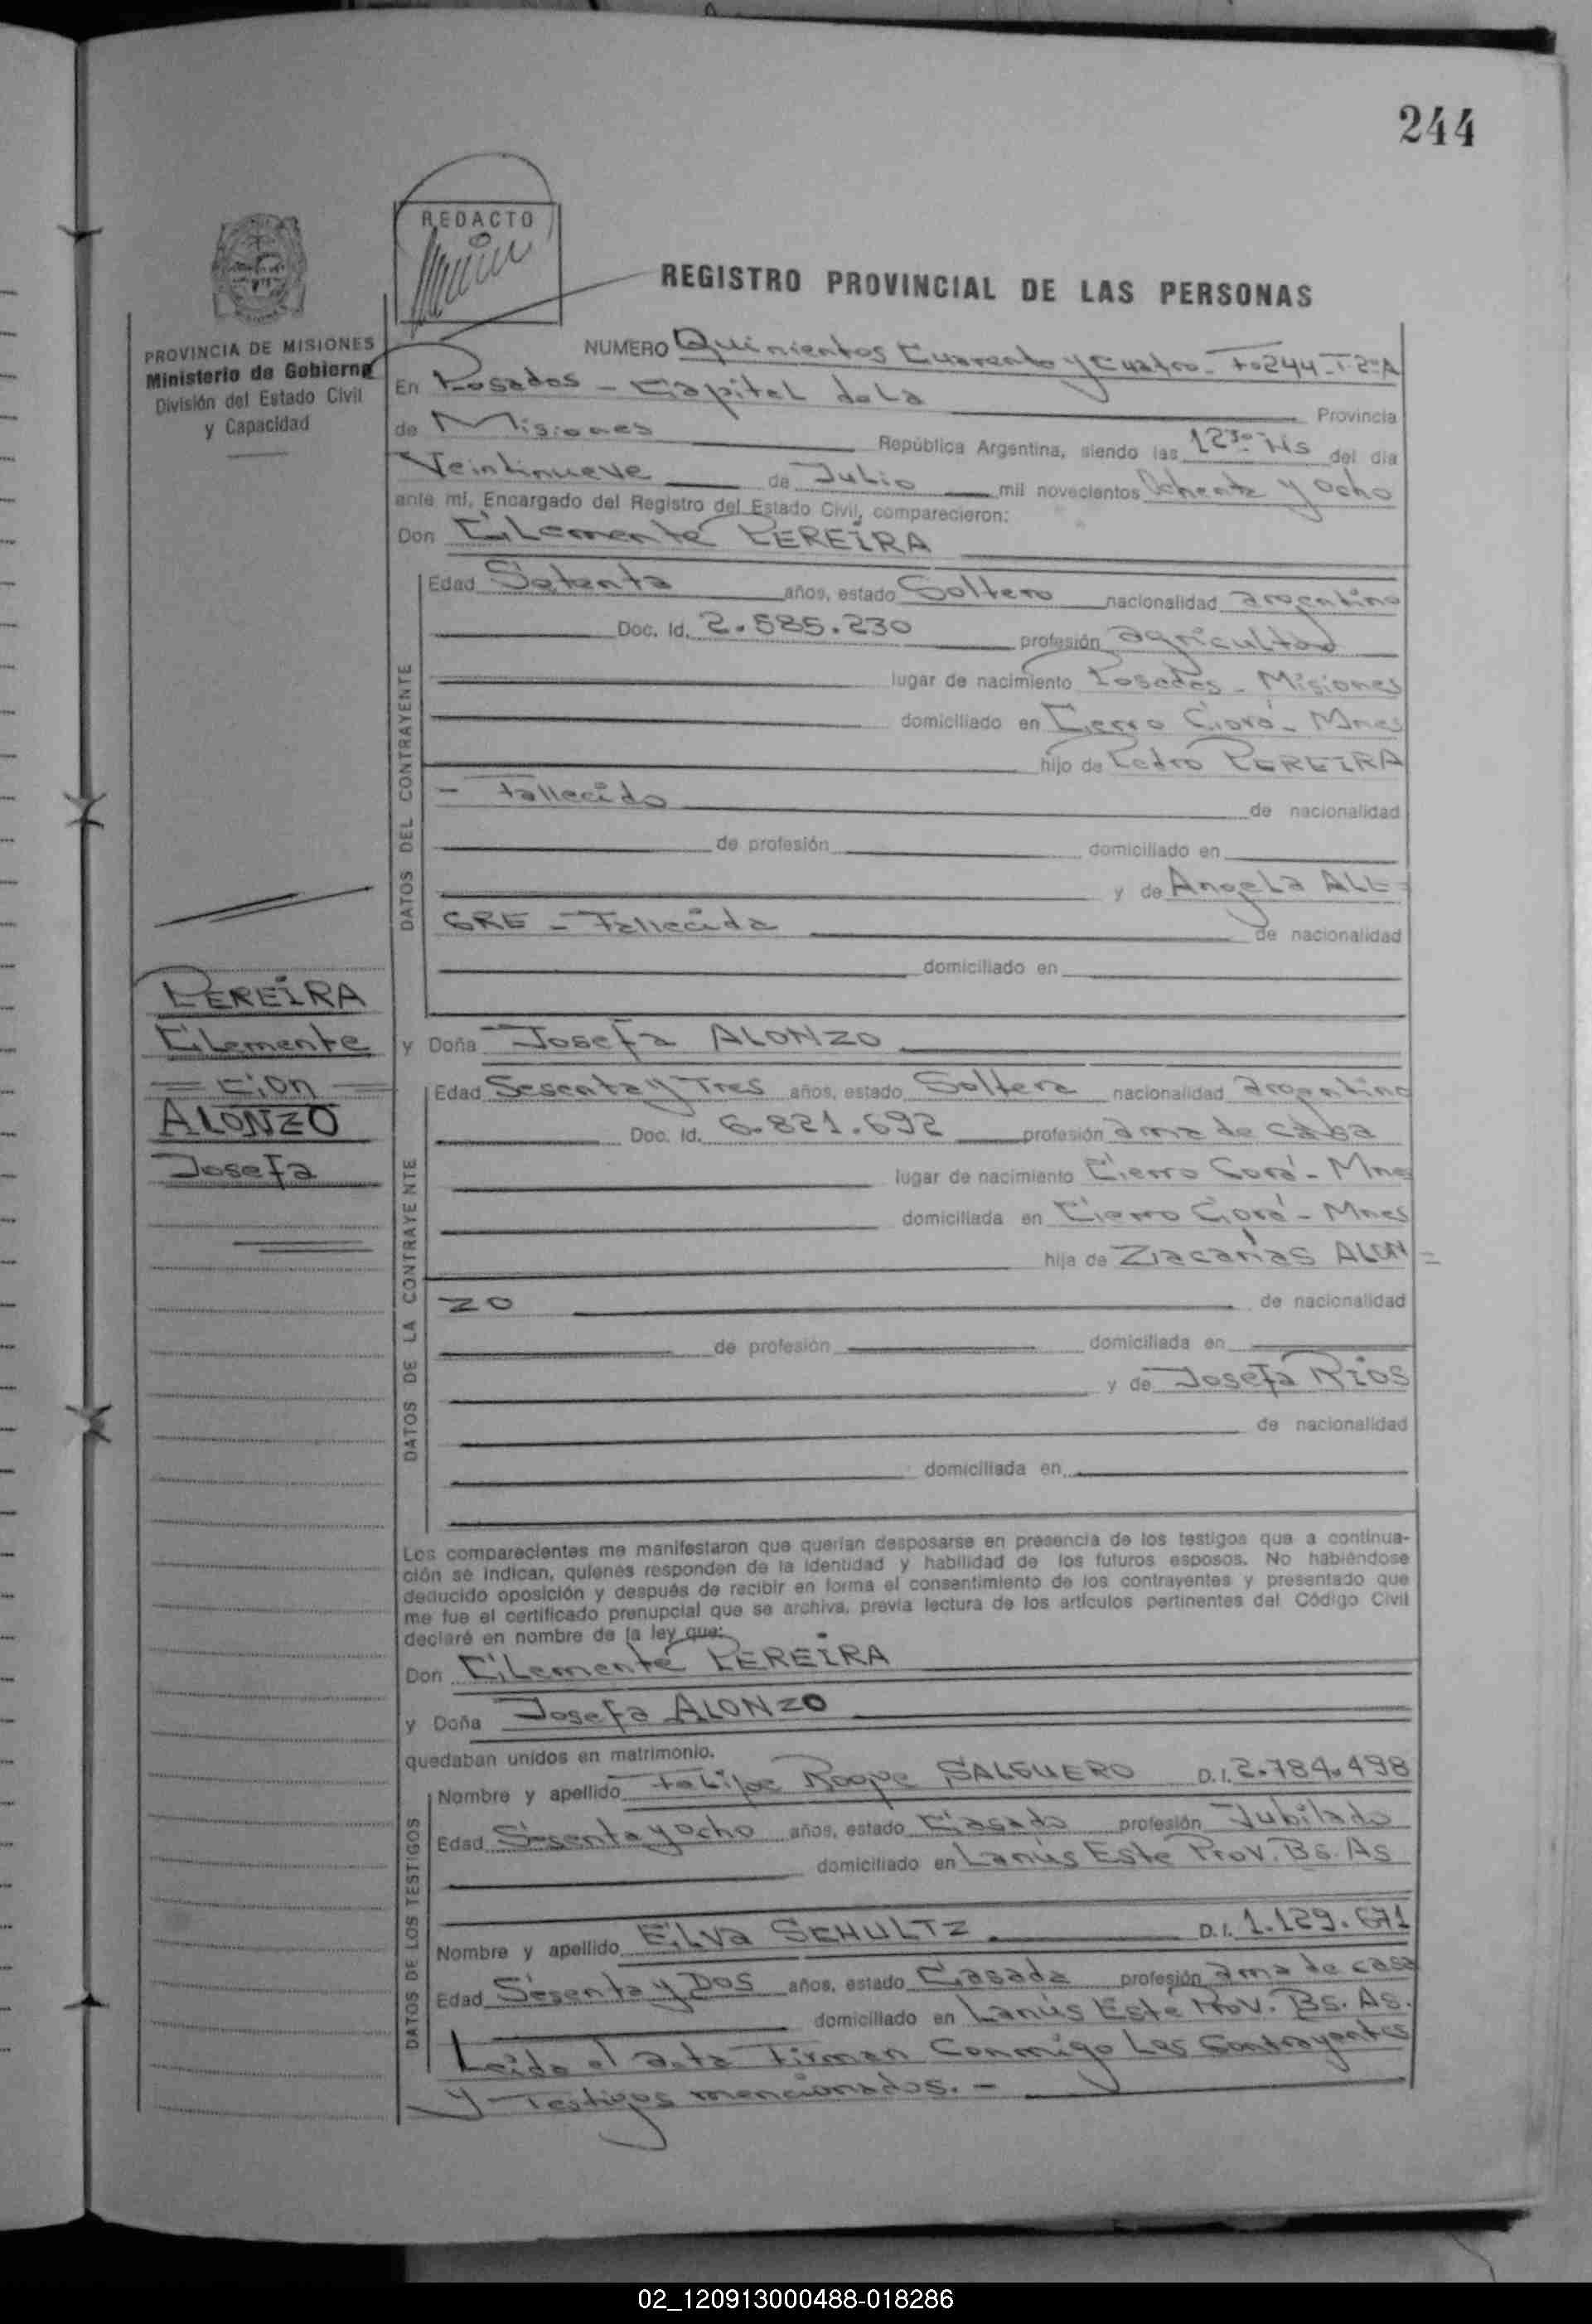 244
REDACTO
REGISTRO PROVINCIAL DE LAS PERSONAS
PROVINCIA DE MISIONES
Ministerio de Gobierno
División del Estado Civil
y Capacidad
NUMERO Quinientos Cuarenta y Cuatro - Fo 244 - T 2º A
En Posadas - Capital de la Provincia
de Misiones República Argentina, siendo las 12³⁰ Hs del día
Veintinueve de Julio mil novecientos Ochenta y ocho
ante mí, Encargado del Registro del Estado Civil, comparecieron:
Don Clemente PEREIRA
DATOS DEL CONTRAYENTE
Edad Setenta años, estado Soltero nacionalidad argentino
Doc. Id. 2.585.230 profesión agricultor
lugar de nacimiento Posadas - Misiones
domiciliado en Cerro Corá - Mnes
hijo de Pedro PEREIRA
- Fallecido de nacionalidad
de profesión domiciliado en
y de Angela ALE=
GRE - Fallecida de nacionalidad
domiciliado en
PEREIRA
Clemente
= con =
ALONZO
Josefa
y Doña Josefa ALONZO
DATOS DE LA CONTRAYENTE
Edad Sesenta y Tres años, estado Soltera nacionalidad argentina
Doc. Id. 6.821.692 profesión ama de casa
lugar de nacimiento Cerro Corá - Mnes
domiciliada en Cerro Corá - Mnes
hija de Zacarías ALON=
ZO de nacionalidad
de profesión domiciliada en
y de Josefa RIOS
de nacionalidad
domiciliada en
Los comparecientes me manifestaron que querían desposarse en presencia de los testigos que a continua-
ción se indican, quienes responden de la identidad y habilidad de los futuros esposos. No habiéndose
deducido oposición y después de recibir en forma el consentimiento de los contrayentes y presentado que
me fue el certificado prenupcial que se archiva, previa lectura de los artículos pertinentes del Código Civil
declaré en nombre de la ley que:
Don Clemente PEREIRA
y Doña Josefa ALONZO
quedaban unidos en matrimonio.
DATOS DE LOS TESTIGOS
Nombre y apellido Felipe Roque SALGUERO D.I. 2.784.498
Edad Sesenta y ocho años, estado Casado profesión Jubilado
domiciliado en Lanús Este Prov. Bs. As
Nombre y apellido Elva SCHULTZ D.I. 1.129.671
Edad Sesenta y Dos años, estado Casada profesión ama de casa
domiciliado en Lanús Este Prov. Bs. As.
Leída el acta Firman Conmigo Los Contrayentes
y Testigos mencionados. -
02_120913000488-018286